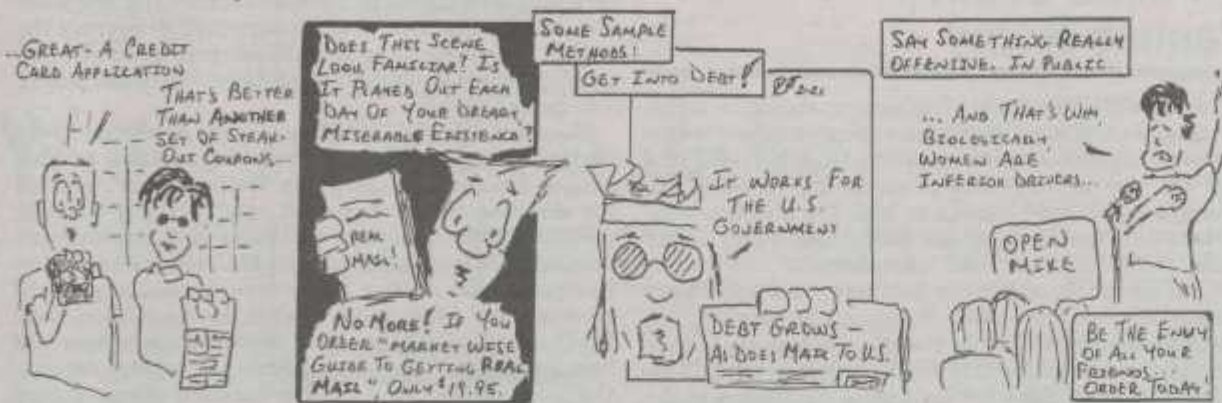 ...GREAT- A CREDIT
CARD APPLICATION
THAT'S BETTER
THAN ANOTHER
SET OF STEAK-
OUT COUPONS...
DOES THIS SCENE
LOOK FAMILIAR? IS
IT PLAYED OUT EACH
DAY OF YOUR DREARY,
MISERABLE EXISTENCE?
REAL
MAIL!
NO MORE! IF YOU
ORDER "MARKET WISE
GUIDE TO GETTING REAL
MAIL", ONLY $19.95.
SOME SAMPLE
METHODS:
GET INTO DEBT!
IT WORKS FOR
THE U.S.
GOVERNMENT
DEBT GROWS -
AS DOES MAIL TO U.S.
SAY SOMETHING REALLY
OFFENSIVE. IN PUBLIC.
... AND THAT'S WHY,
BIOLOGICALLY,
WOMEN ARE
INFERIOR DRIVERS...
OPEN
MIKE
BE THE ENVY
OF ALL YOUR
FRIENDS...
ORDER TODAY!